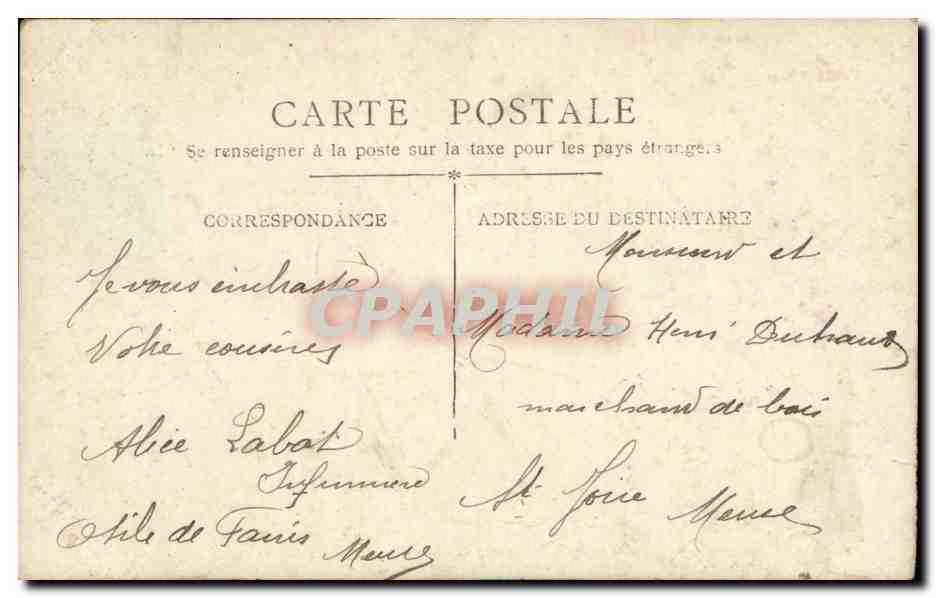 CARTE POSTALE
Se renseigner à la poste sur la taxe pour les pays étrangers
CORRESPONDANCE
Je vous embrasse
Votre cousines
Alice Labat
Infirmiere
Asile de Fains Meuse
ADRESSE DU DESTINATAIRE
Monsieur et
Madame Henri
marchand de bois
St Joire Meuse
CPAPHIL